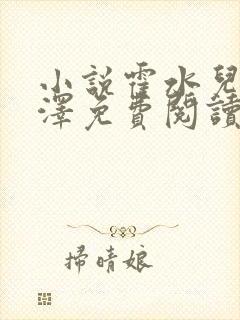 小說霍水兒
澤免費閱讀
掃晴娘